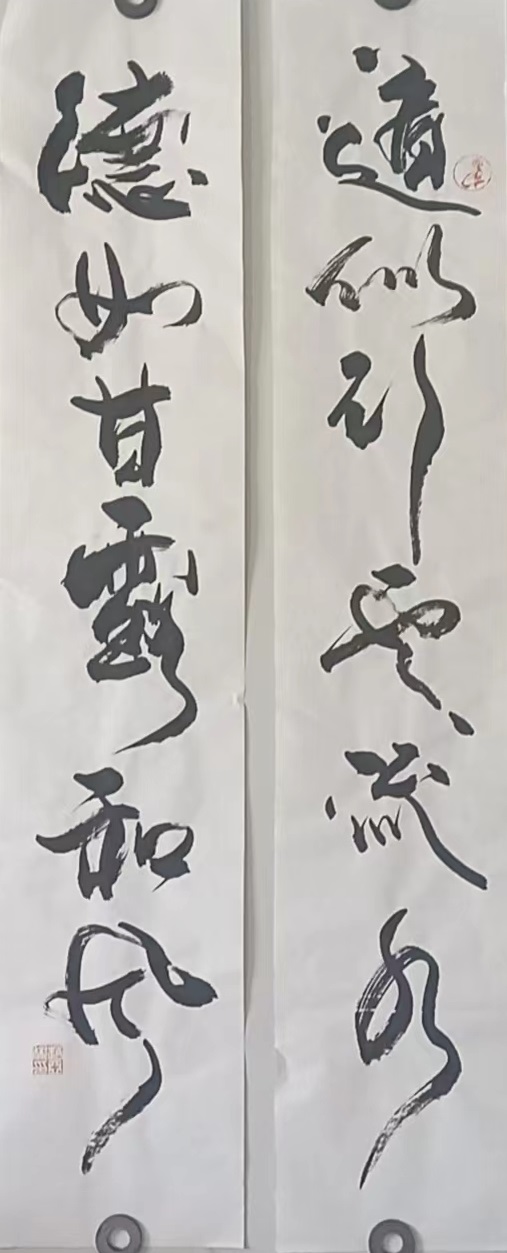 道似行云流水
德如甘露和风